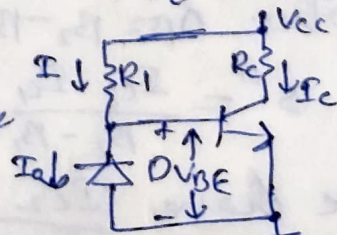 Vcc
I ↓ R1
Rc ↓ Ic
+
Io ↓
VBE
-